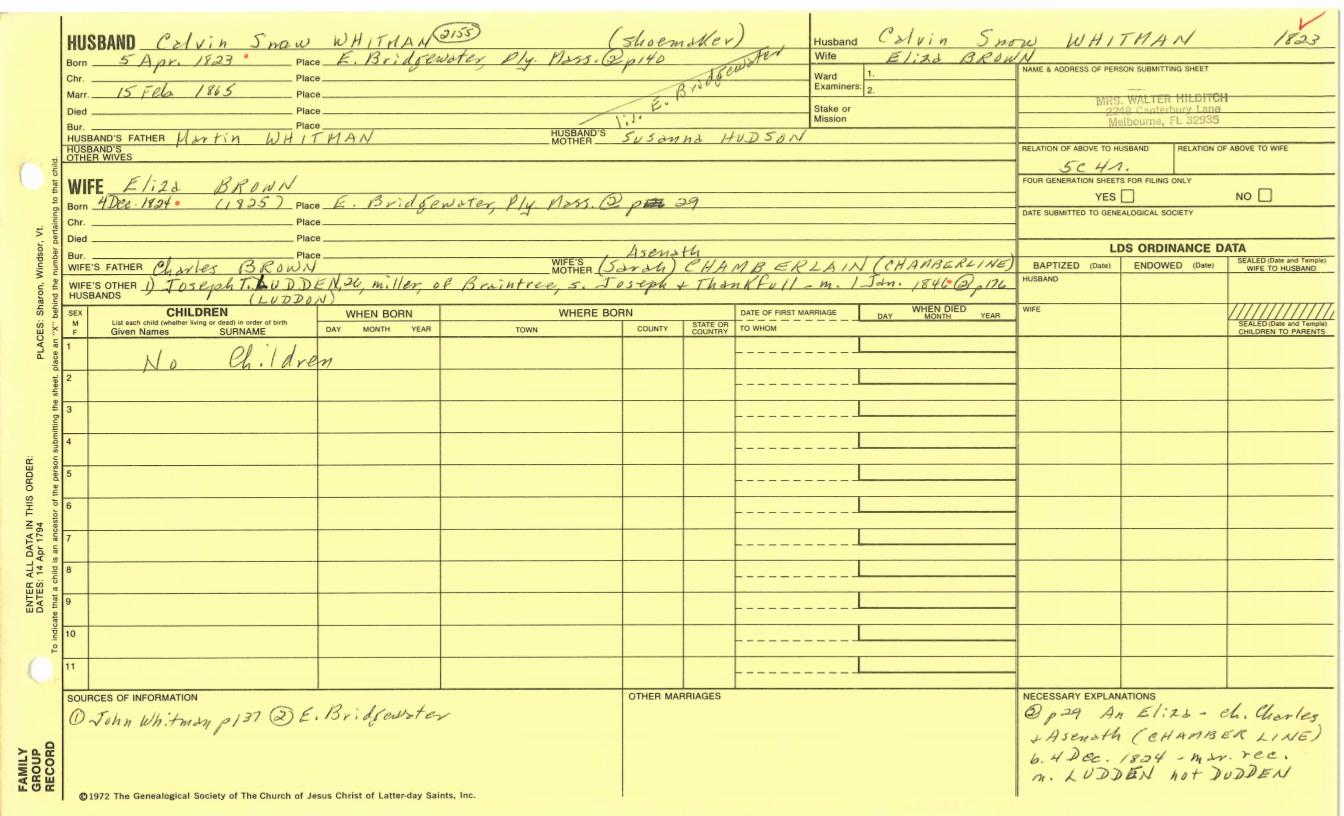 HUSBAND Calvin Snow WHITMAN 2155 (shoemaker)
Born 5 Apr. 1823 Place E. Bridgewater, Ply. Mass. ② p140
Chr. Place
Marr. 15 Feb 1865 Place
liv. E. Bridgewater
Died Place
Bur. Place
HUSBAND'S FATHER Martin WHITMAN HUSBAND'S MOTHER Susanna HUDSON
HUSBAND'S OTHER WIVES
Husband Calvin Snow WHITMAN 1823
Wife Eliza BROWN
Ward Examiners: 1.
2.
Stake or Mission
NAME & ADDRESS OF PERSON SUBMITTING SHEET
MRS. WALTER HILDITCH
2248 Canterbury Lane
Melbourne, FL 32935
RELATION OF ABOVE TO HUSBAND RELATION OF ABOVE TO WIFE
5C 4r.
FOUR GENERATION SHEETS FOR FILING ONLY
YES NO
DATE SUBMITTED TO GENEALOGICAL SOCIETY
WIFE Eliza BROWN
Born 4 Dec. 1824 (1825) Place E. Bridgewater, Ply. Mass. ② p 29
Chr. Place
Died Place
Bur.
Asenath
WIFE'S FATHER Charles BROWN WIFE'S MOTHER (Sarah) CHAMBERLAIN (CHAMBERLINE)
WIFE'S OTHER HUSBANDS 1) Joseph T. LUDDEN, 26, miller, of Braintree, s. Joseph + Thankfull - m. 1 Jan. 1846 ② p176
(LUDDON)
LDS ORDINANCE DATA
BAPTIZED (Date) ENDOWED (Date) SEALED (Date and Temple) WIFE TO HUSBAND
HUSBAND
WIFE
SEALED (Date and Temple) CHILDREN TO PARENTS
SEX M F
CHILDREN
List each child (whether living or dead) in order of birth
Given Names SURNAME
WHEN BORN
DAY MONTH YEAR
WHERE BORN
TOWN COUNTY STATE OR COUNTRY
DATE OF FIRST MARRIAGE
TO WHOM
WHEN DIED
DAY MONTH YEAR
1 No Children
2
3
4
5
6
7
8
9
10
11
SOURCES OF INFORMATION
① John Whitman p137 ② E. Bridgewater
OTHER MARRIAGES
NECESSARY EXPLANATIONS
② p29 An Eliza - ch. Charles
+ Asenath (CHAMBERLINE)
b. 4 Dec. 1824 - mar. rec.
m. LUDDEN not DUDDEN
©1972 The Genealogical Society of The Church of Jesus Christ of Latter-day Saints, Inc.
FAMILY GROUP RECORD
ENTER ALL DATA IN THIS ORDER:
DATES: 14 Apr 1794
PLACES: Sharon, Windsor, Vt.
To indicate that a child is an ancestor of the person submitting the sheet, place an "X" behind the number pertaining to that child.